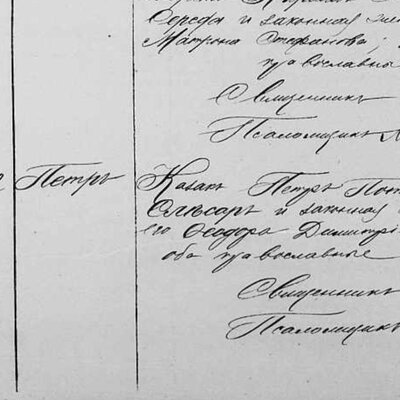 Середа и законная
Матрона Стефанова;
православны
Священникъ
Псаломщикъ
Петръ
Казакъ Петръ
Слѣсарь и законная
его Ѳеодора Димитрі
оба православные
Священникъ
Псаломщикъ